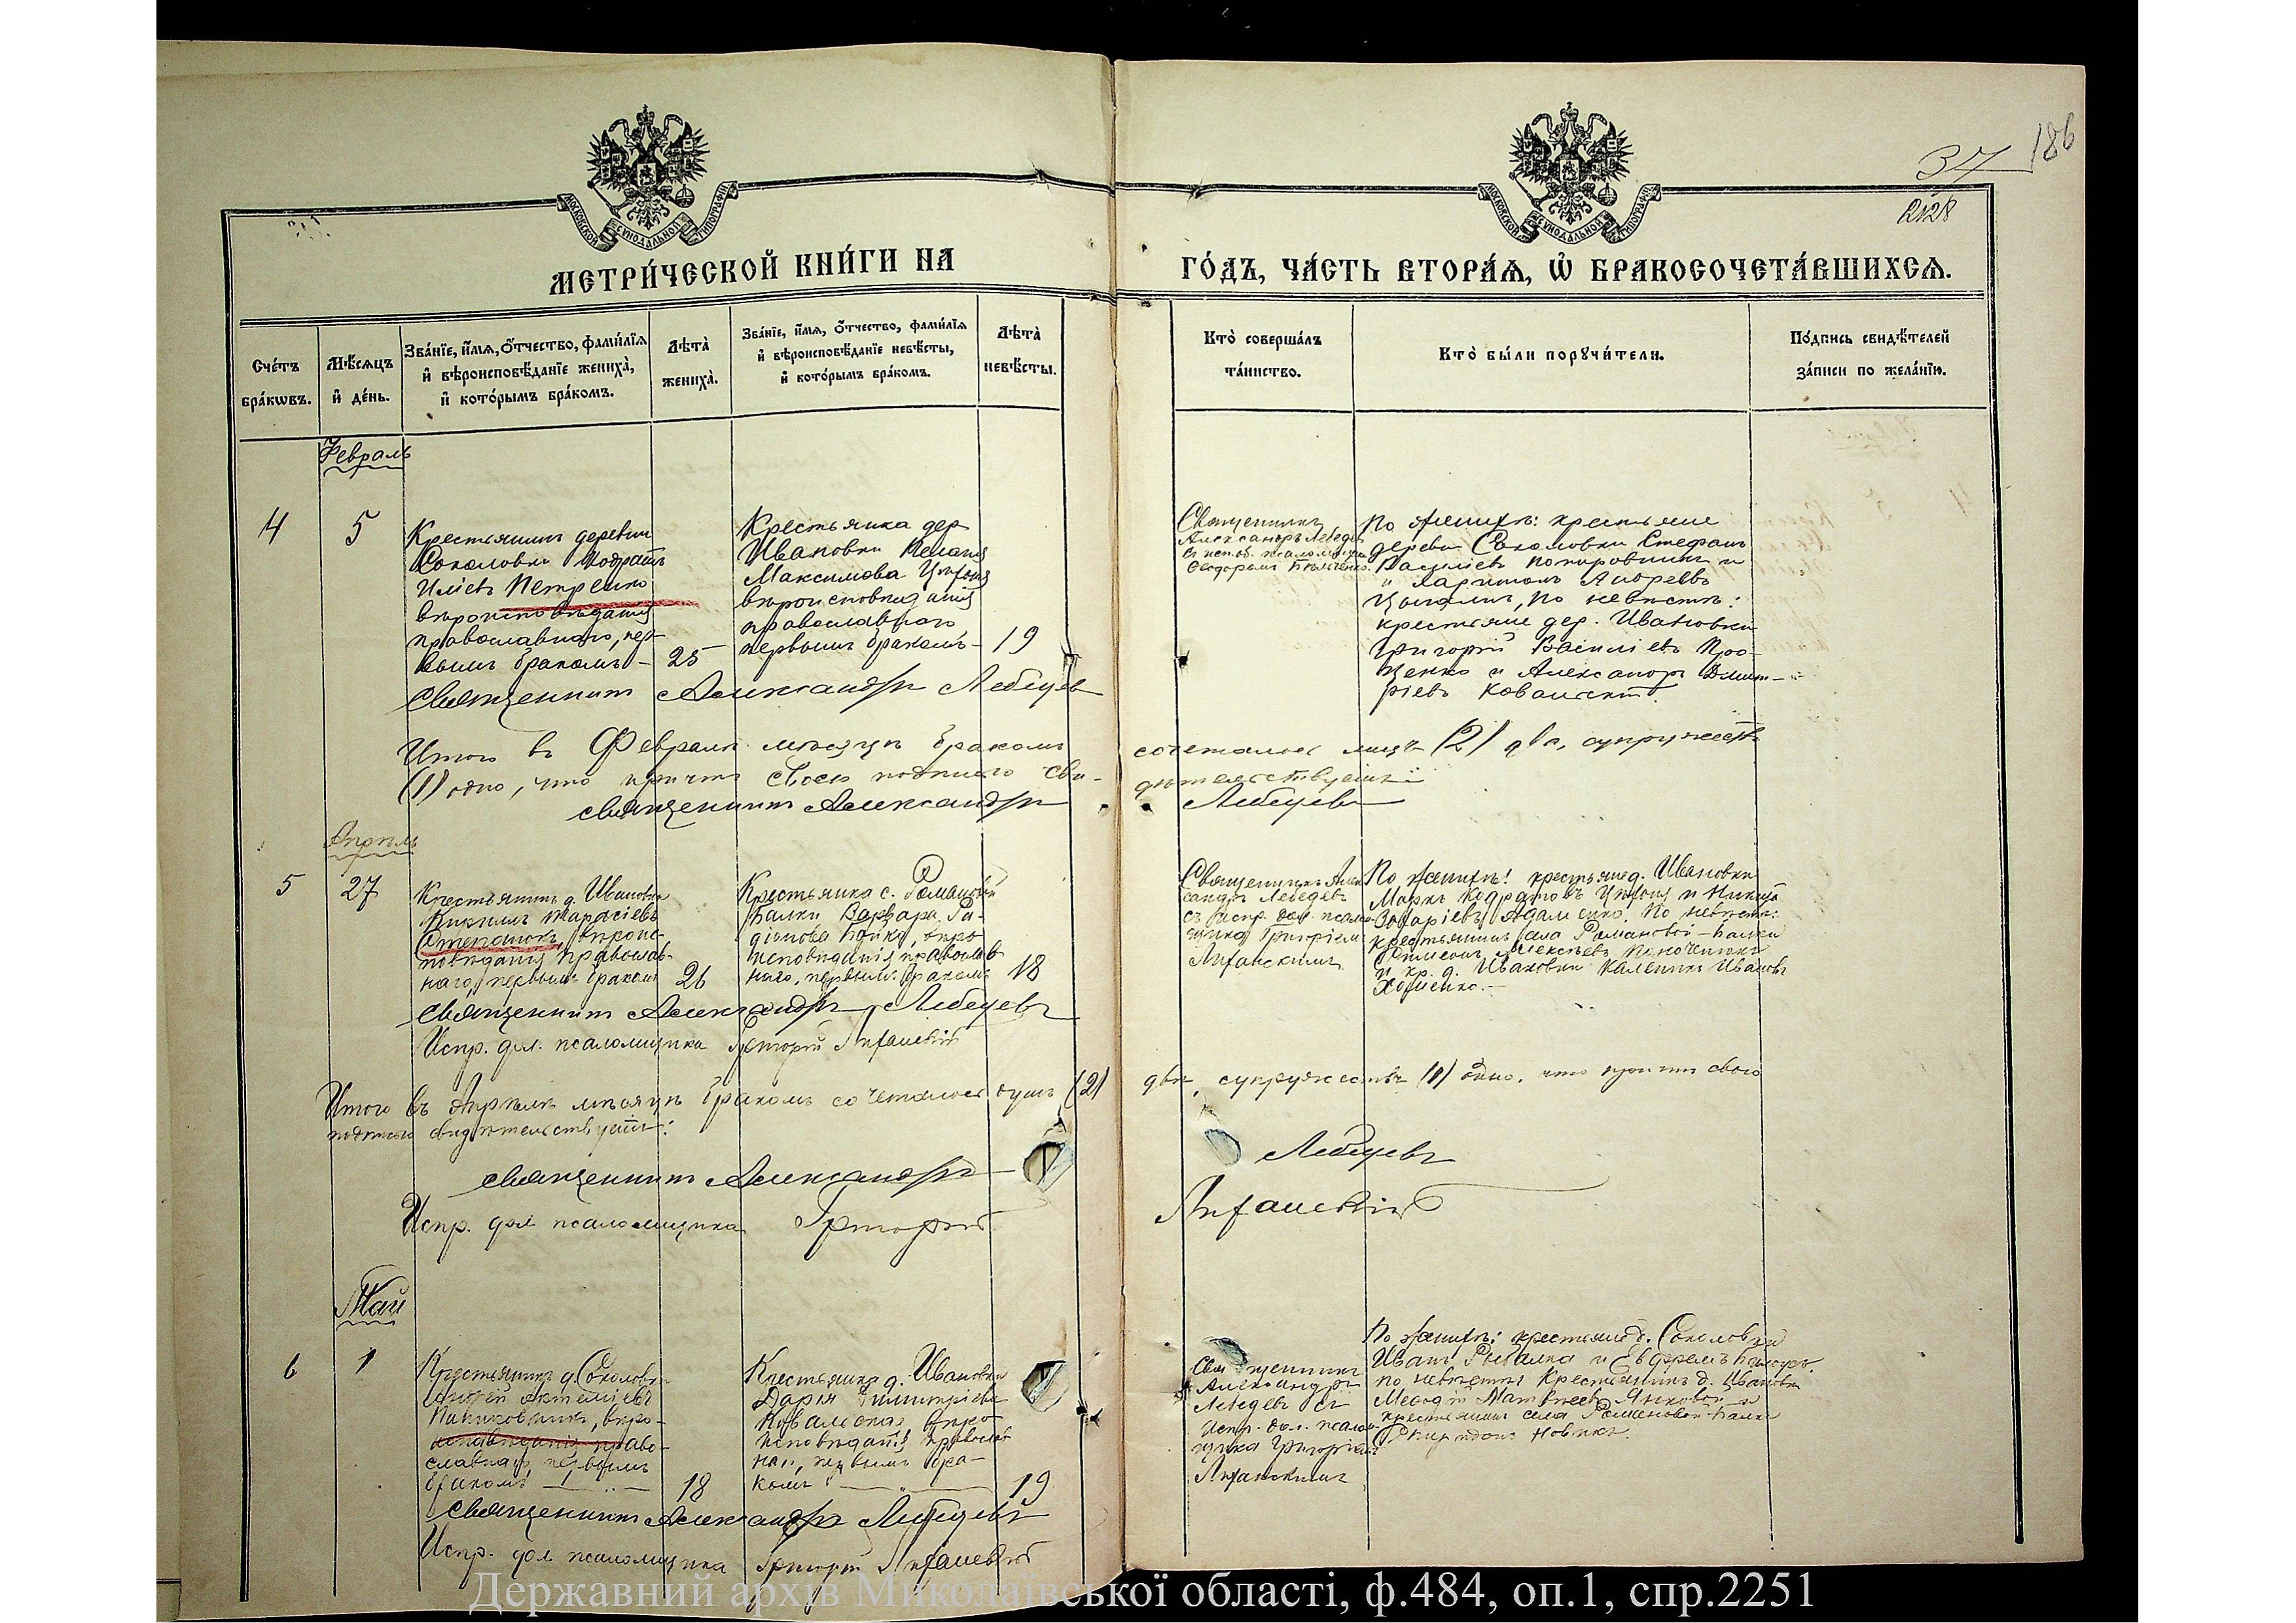 186
37
2128
МОСКОВСКОЙ СѴНОДАЛЬНОЙ ТИПОГРАФІИ
МОСКОВСКОЙ СѴНОДАЛЬНОЙ ТИПОГРАФІИ
МЕТРИ́ЧЕСКОЙ КНИ́ГИ НА
ГО́ДЪ, ЧА́СТЬ ВТОРА́Ѧ, Ѽ БРАКОСОЧЕТА́ВШИХСѦ.
Сче́тъ
бра́кѡвъ.
Мѣ́сѧцъ
и҆ де́нь.
Зва́нїе, и҆́мѧ, о҆́тчество, фами́лїѧ
и҆ вѣроисповѣ́данїе жениха̀,
и҆ кото́рымъ бра́комъ.
Лѣта̀
жениха̀.
Зва́нїе, и҆́мѧ, о҆́тчество, фами́лїѧ
и҆ вѣроисповѣ́данїе невѣ́сты,
и҆ кото́рымъ бра́комъ.
Лѣта̀
невѣ́сты.
Кто̀ соверша́лъ
та́инство.
Кто̀ бы́ли порꙋчи́тели.
По́дпись свидѣ́телей
за́писи по жела́нїю.
Февраль
4
5
Крестьянинъ деревни
Соколовки Кодратъ
Иліевъ Петренко
вѣроисповѣданія
православнаго, пер-
вымъ бракомъ –
25
Крестьянка дер
Ивановки
Максимова
вѣроисповѣданія
православнаго
первымъ бракомъ –
19
Священникъ
Александръ Лебедевъ
Ѳеодоромъ
По женихѣ: крестьяне
деревни Соколовки Стефанъ
Василіевъ и
Харитонъ Андреевъ
Цыганъ, по невѣстѣ:
крестьяне дер. Ивановки
Григорій Василіевъ Про-
ценко и Александръ Димит-
ріевъ
Священникъ Александръ Лебедев
Итого въ Февралѣ мѣсяцѣ бракомъ сочеталось лицъ (2) два, супружествъ
(1) одно, что причтъ своею подписью сви-
дѣтельствуетъ:
священникъ Александръ Лебедевъ
Апрѣль
5
27
Крестьянинъ д. Ивановки
Тарасіевъ
Степанокъ, вѣроис-
повѣданія православ-
наго, первымъ бракомъ
26
Крестьянка с. Романовой
Балки Варвара Ра-
діонова вѣро-
исповѣданія православ-
наго, первымъ бракомъ
18
Священникъ Алек
сандръ Лебедевъ
съ испр. дол. псалом-
щика Григоріемъ
Лифанскимъ
По женихѣ: крестьяне д. Ивановки
Маркъ Кодратовъ и Никита
Захаріевъ Адаменко. По невѣстѣ:
крестьянинъ села Романовой-Балки
Алексѣевъ
и кр. д. Ивановки Каленикъ Ивановъ
Хоменко. –
священникъ Александръ Лебедевъ
Испр. дол. псаломщика Григорій Лифанскій
Итого въ Апрѣлѣ мѣсяцѣ бракомъ сочеталось душъ (2) двѣ, супружествъ (1) одно, что причтъ своею
подписью свидѣтельствуетъ:
священникъ Александръ Лебедевъ
Испр. дол псаломщика Григорій Лифанскій
Май
6
1
Крестьянинъ д. Соколовки
Андрей
вѣро-
исповѣданія право-
славнаго, первымъ
бракомъ –
18
Крестьянка д. Ивановки
Дарія Димитріева
Ковалева вѣро
исповѣданія православ
наго, первымъ бра-
комъ –
19
Священникъ
Александръ
Лебедевъ съ
Испр. дол. псалом-
щика Григоріемъ
Лифанскимъ
По женихѣ: крестьяне д. Соколовки
Иванъ Рыбалка и
по невѣстѣ Крестьянинъ д. Ивановки
Меѳодій Матвѣевъ и
крестьянинъ села Романовой-Балки
Спиридонъ Новикъ.
священникъ Александръ Лебедевъ
Испр. дол псаломщика Григорій Лифанскій
Державний архів Миколаївської області, ф.484, оп.1, спр.2251